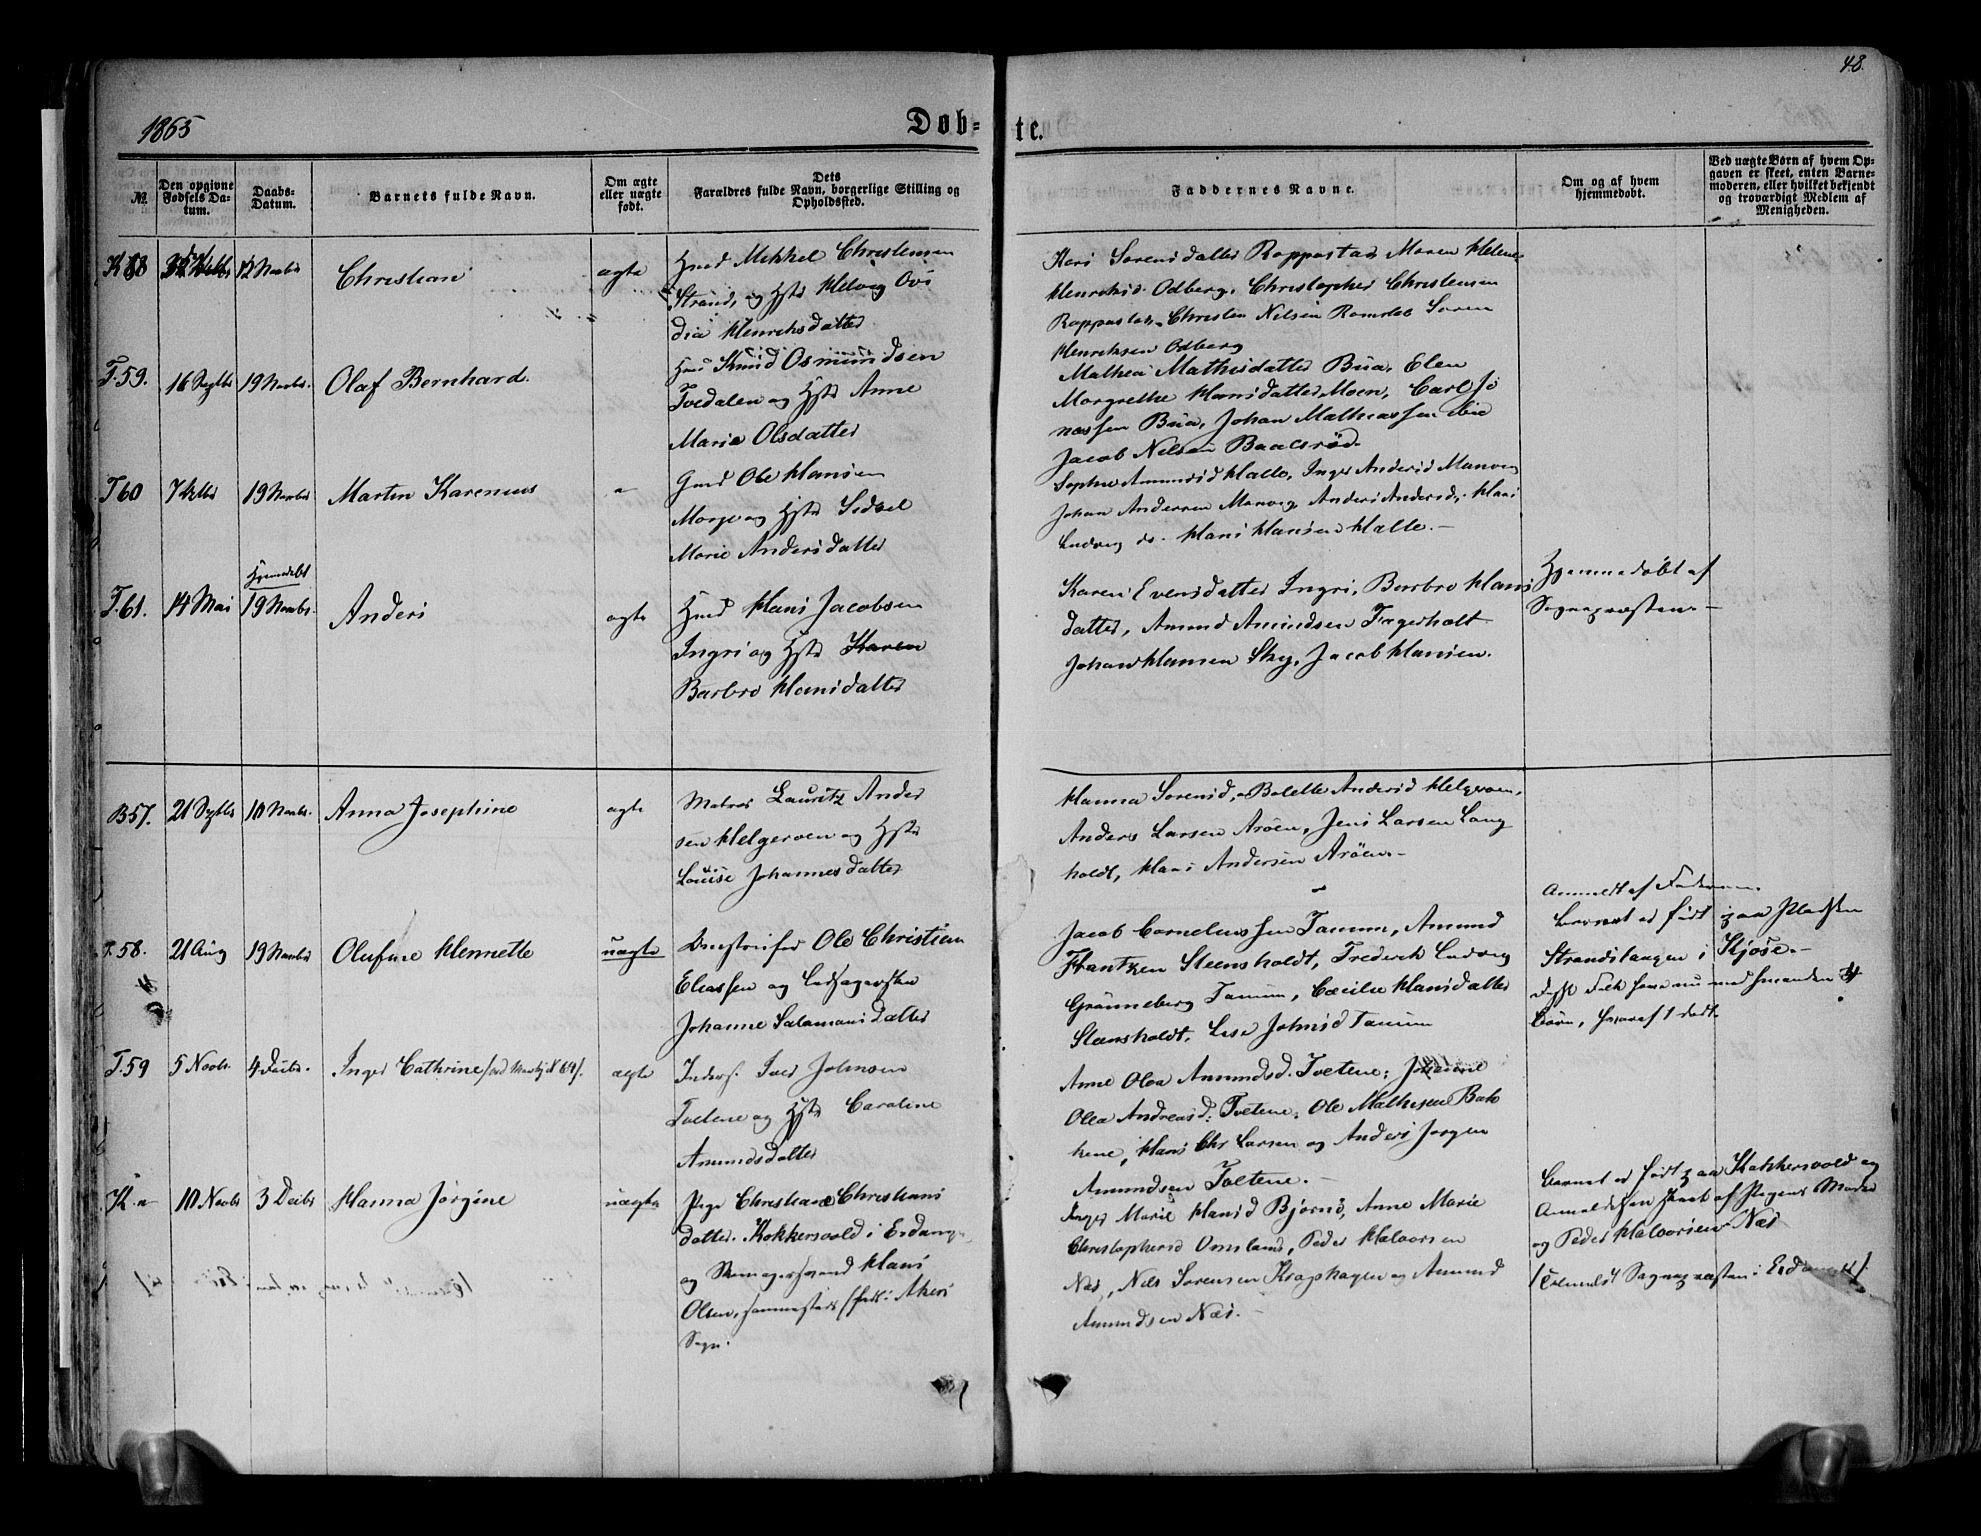 48.
1865
Døb-
te.
№
Den opgivne Fødsels Da-
tum.
Daabs-
Datum.
Barnets fulde Navn.
Om ægte
eller uægte
født.
Dets
Forældres fulde Navn, borgerlige Stilling og
Opholdssted.
Faddernes Navne.
Om og af hvem
hjemmedøbt.
Ved uægte Børn af hvem Op-
gaven er skeet, enten Barne-
moderen, eller hvilket bekjendt
og troværdigt Medlem af
Menigheden.
12 Novbr
Christian
ægte
Hmd Mikkel Christensen
Strand, og Hstr Helvig Ovi
dia Henriksdatter
Kari Sorensdatter Roppestad Maren Helene
Henriksd. Odberg, Christopher Christensen
Roppestad Christen Nilsen Soren
Henriksen Odberg
T.59.
16 Septbr
19 Novbr.
Olaf Bernhard.
Hmd Knud Osmundsen
Tvedalen og Hstr Anne
Maria Olsdatter
Mathea Mathisdatter Bua, Elen
Margrethe Hansdatter Moen, Carl Jo
nassen Bua, Johan Mathiassen
Jacob Nilsen
T60
19 Novbr
Martin Karenius
"
Gmd Ole Hansen
og Hstr Sidsel
Marie Andersdatter
Sophie Amundsd Halle, Inger Andersd Manvig
Johan Andersen Manvig, Anders Andersd, Hans
Ludvig do. Hans Hansen Halle.-
T.61.
14 Mai
19 Novbr.
Anders
ægte
Hmd Hans Jacobsen
Ingri og Hstr Karen
Barbro Hansdatter
Karen Evensdatter Ingri, Barbro Hans
datter, Amund Amundsen Fagerholt
Johan Hansen Sky, Jacob Hansen.
Hjemmedøbt af
Sognepræsten.-
B57.
21 Septbr
10 Novbr.
Anna Josephine
ægte
Matros Lauritz Ander
sen Helgeroen og Hstr
Louise Johannesdatter
Hanna Sorensd, Bolette Andersd Helgeroen,
Anders Larsen Aröen, Jens Larsen Lang
holdt, Hans Andersen Aröen.-
T.58.
21 Aug
19 Novbr
Olufine Hennette
uægte
Ole Christian
Eliassen og
Johanne Salamonsdatter
Jacob Corneliussen Tanum, Amund
Frantzen Steensholdt, Frederik Ludvig
Grönneberg Tanum, Cæcilie Hansdatter
Steensholdt, Lise Johnsd Tanum
Anmeldt af Faderen.
Barnet er født paa Pladsen
Strandstangen i Kjose.-
Børn, hvoraf 1 dødt.
T.59
5 Novbr.
4 Decbr.
Inger Cathrine
ægte
Inderst. Iver Johnsen
Tvetene og Hstr Caroline
Amundsdatter
Anne Olea Amundsd. Tvetene, Johanne
Olea Andreasd. Tvetene, Ole Mathisen Bak
kene, Hans Chr Larsen og Anders Jorgen
Amundsen Tvetene.-
K.
10 Novbr
3 Decbr
Hanna Jørgine
uægte
Pige Christiane Christians
datter. Kokkersvold i Eidanger
og Skomagersvend Hans
Olsen, sammesteds /født i Akers
Sogn.
Inger Marie Hansd Bjørnø, Anne Marie
Christophersd Omsland, Peder Halvorsen
Næs, Nils Sorensen Kraghagen og Amund
Amundsen Næs.-
Barnet er født paa Kokkersvold og
Anmeldelsen skeet af Pigens Moder
og Peder Halvorsen Næs
Sognepræsten i Eidanger/.